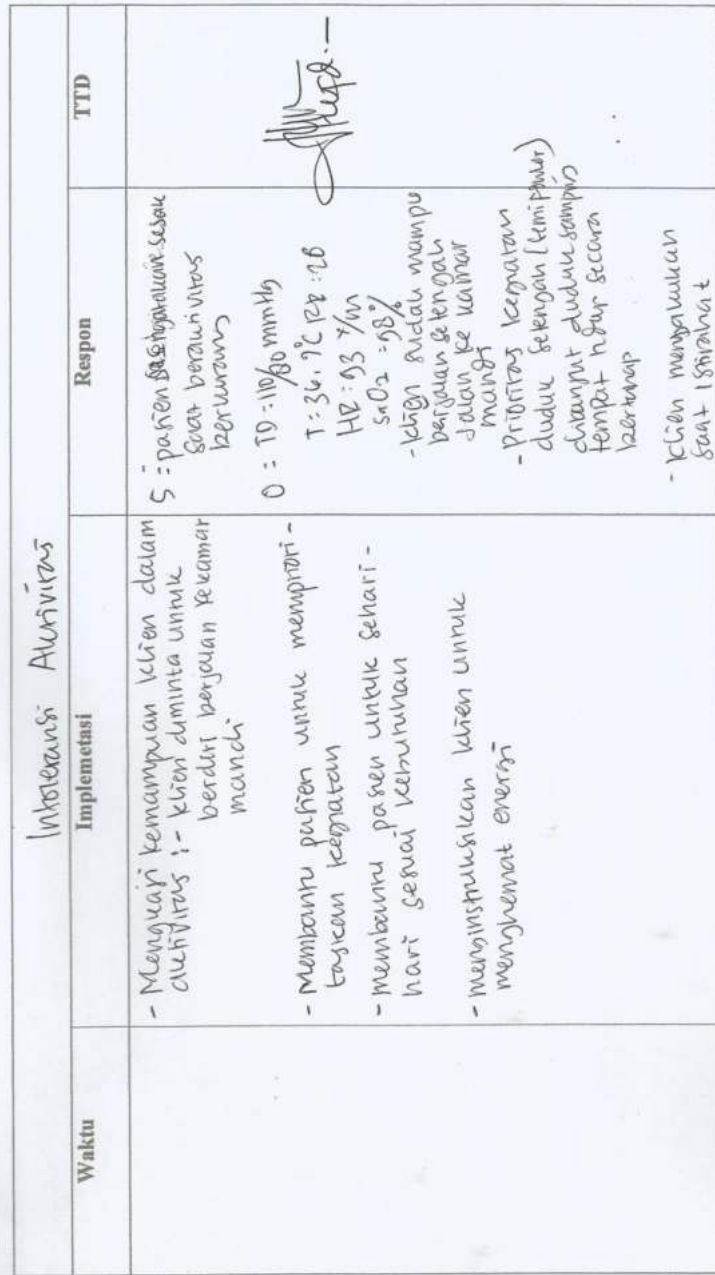 Intoleransi Aktivitas
Waktu
Implemetasi
Respon
TTD
- Mengkaji kemampuan klien dalam
aktivitas :- klien diminta untuk
berdiri berjalan kekamar
mandi
- Membantu pasien untuk mempriori-
taskan kegiatan
- membantu pasien untuk sehari-
hari sesuai kebutuhan
- menginstruksikan klien untuk
menghemat energi
S : pasien mengatakan sesak
saat beraktivitas
berkurang
O = TD = 110/80 mmHg
T = 36,9°C RR : 20
HR : 93 x/m
SaO2 = 98%
- klien sudah mampu
berjalan setengah
jalan ke kamar
mandi
- Prioritas kegiatan
duduk setengah (semi powler)
dilanjut duduk samping
tempat tidur secara
bertahap
- Klien mengatakan
saat istirahat